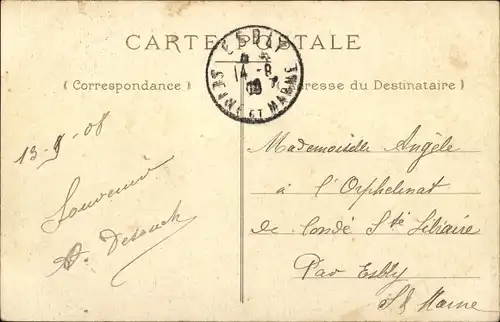 CARTE POSTALE
ESBLY
14 - 8
08
SEINE ET MARNE
( Correspondance )
Adresse du Destinataire )
13-9-08
Souvenir
Mademoiselle Angèle
à l'Orphelinat
de Condé Ste Libiaire
Par Esbly
S & Marne